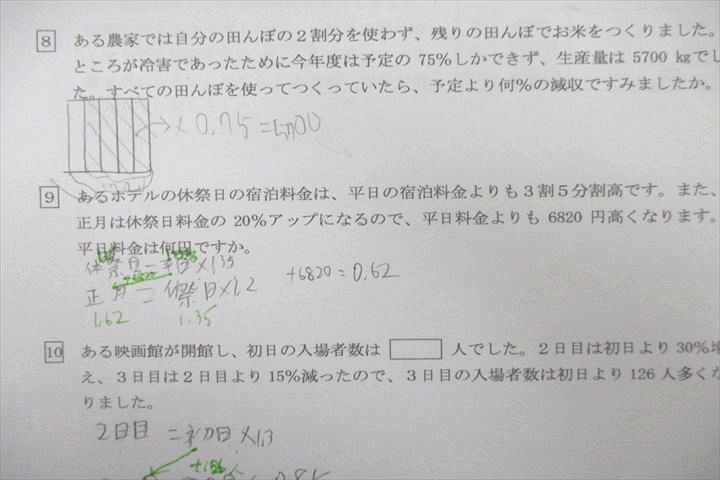 8 ある農家では自分の田んぼの2割分を使わず、残りの田んぼでお米をつくりました。
ところが冷害であったために今年度は予定の 75%しかできず、生産量は 5700 kgでし
た。すべての田んぼを使ってつくっていたら、予定より何%の減収ですみましたか。
×0.75=5700
9 あるホテルの休祭日の宿泊料金は、平日の宿泊料金よりも3割5分割高です。また、
正月は休祭日料金の 20%アップになるので、平日料金よりも 6820 円高くなります。
平日料金は何円ですか。
休祭日=平日×1.35
+6820=0.62
正月=休祭日×1.2
1.62 1.35
10 ある映画館が開館し、初日の入場者数は 人でした。2日目は初日より 30%増
え、3日目は2日目より 15%減ったので、3日目の入場者数は初日より 126 人多くな
りました。
2日目=初日×1.3